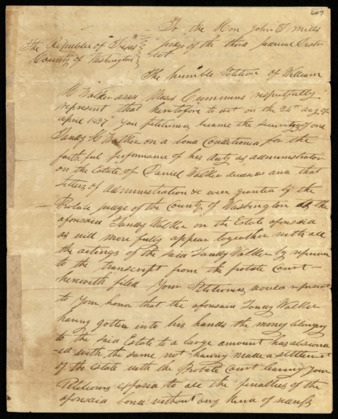 To the Hon John T Mills
The Republic of Texas judge of the third judicial Dist
County of Washington rict
The humble Petition of William
H Walker and Moses Cummins respectfully
represent that heretofore to wit on the 24th day of
april 1837 your petitioners became the security of one
Tandy H Walker on a bond Conditiond for the
faithful performance of his duty as administrator
on the Estate of Daniel Walker deceased and that
letters of administration &c were granted by the
Probate judge of the County of Washington to the
aforesaid Tandy Walker on the Estate aforesaid
as will more fully appear together with all
the actings of the said Tandy Walker by referen
to the transcript from the probate court
herewith filed Your Petitioners would represent
to your honor that the aforesaid Tandy Walker
having gotten into his hands the money belonging
to the said Estate to a large amount has
with the same not having made a settlement
of the Estate with the Probate Court leaving your
Petitioners exposed to all the penalties of the
aforesaid bond without any kind of